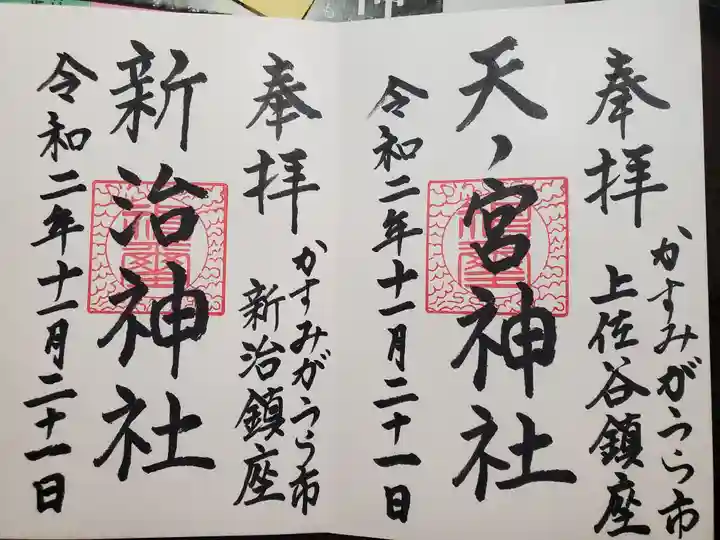 奉拝
かすみがうら市
上佐谷鎮座
天ノ宮神社
令和二年十一月二十一日
奉拝
かすみがうら市
新治鎮座
新治神社
令和二年十一月二十一日